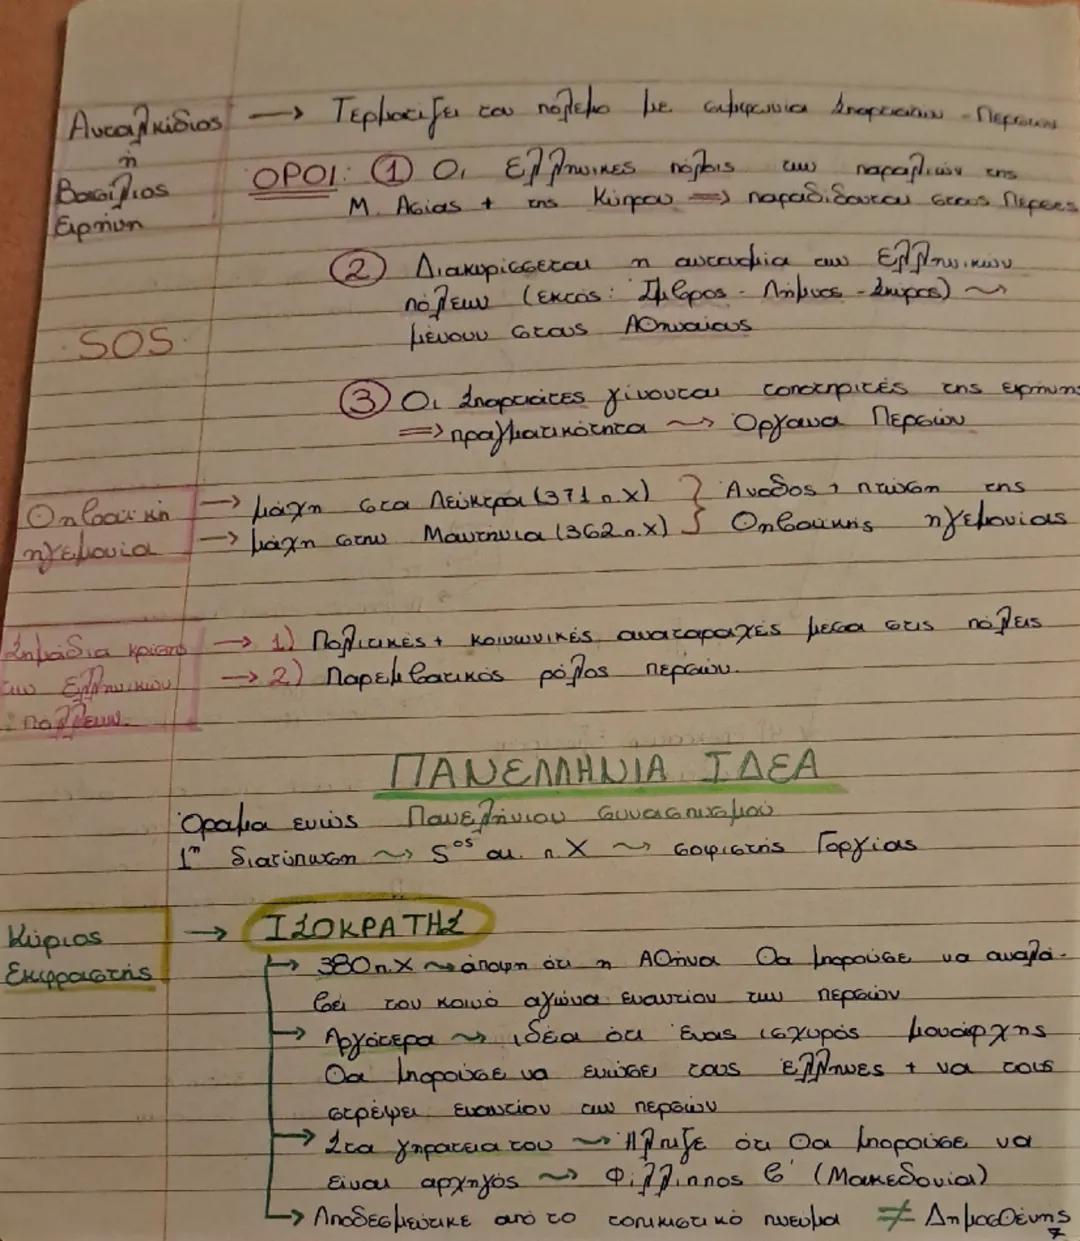 Ανταλκίδιος → Τερματίζει τον πόλεμο με συμφωνία Σπαρτιατών - Περσών
ή
Βασίλιος
Ειρήνη
ΟΡΟΙ: ① Οι Ελληνικές πόλεις των παραλιών της
Μ. Ασίας + της Κύπρου ⇒ παραδίδονται στους Πέρσες
② Διακυρίσσεται η αυτονομία των Ελληνικών
πόλεων (εκτός: Ίμβρος - Λήμνος - Σκύρος) ⤳
μένουν στους Αθηναίους
SOS
③ Οι Σπαρτιάτες γίνονται τοποτηρητές της ειρήνης
⇒ πραγματικότητα ⤳ Όργανα Περσών
Θηβαϊκή ηγεμονία → μάχη στα Λεύκτρα (371 π.Χ) } Άνοδος, πτώση της
→ μάχη στην Μαντήνεια (362 π.Χ) } Θηβαϊκής ηγεμονίας
Σημάδια κρίσης → 1) Πολιτικές + κοινωνικές αναταραχές μεσα στις πόλεις
των Ελληνικών → 2) Παρεμβατικός ρόλος περσών.
πολλεων.
ΠΑΝΕΛΛΗΝΙΑ ΙΔΕΑ
Όραμα ενιώς Πανελήνιου συνασπισμού
1η διατύπωση ⤳ 5ος αι. π.Χ ⤳ σοφιστής Γοργίας
Κύριος → ΙΣΟΚΡΑΤΗΣ
Εκφραστής
→ 380 π.Χ ⤳ άποψη ότι η Αθήνα θα μπορούσε να αναλά-
βει τον κοινό αγώνα εναντίον των περσών
→ Αργότερα ⤳ ιδέα ότι ένας ισχυρός μονάρχης
θα μπορούσε να ενώσει τους Έλληνες + να τους
στρέψει εναντίον των περσών
→ Στα γηρατεια του ⤳ Ήλπιζε ότι θα μπορούσε να
είναι αρχηγός ⤳ Φίλλιππος β' (Μακεδονία)
→ Αποδεσμεύτικε από το τοπικιστικό πνευμα ≠ Δημοσθένης